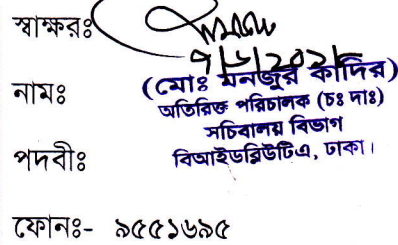 স্বাক্ষরঃ
নামঃ (মোঃ মনজুর কাদির)
অতিরিক্ত পরিচালক (চঃ দাঃ)
সচিবালয় বিভাগ
পদবীঃ বিআইডব্লিউটিএ, ঢাকা।
ফোনঃ- ৯৫৫১৬৯৫